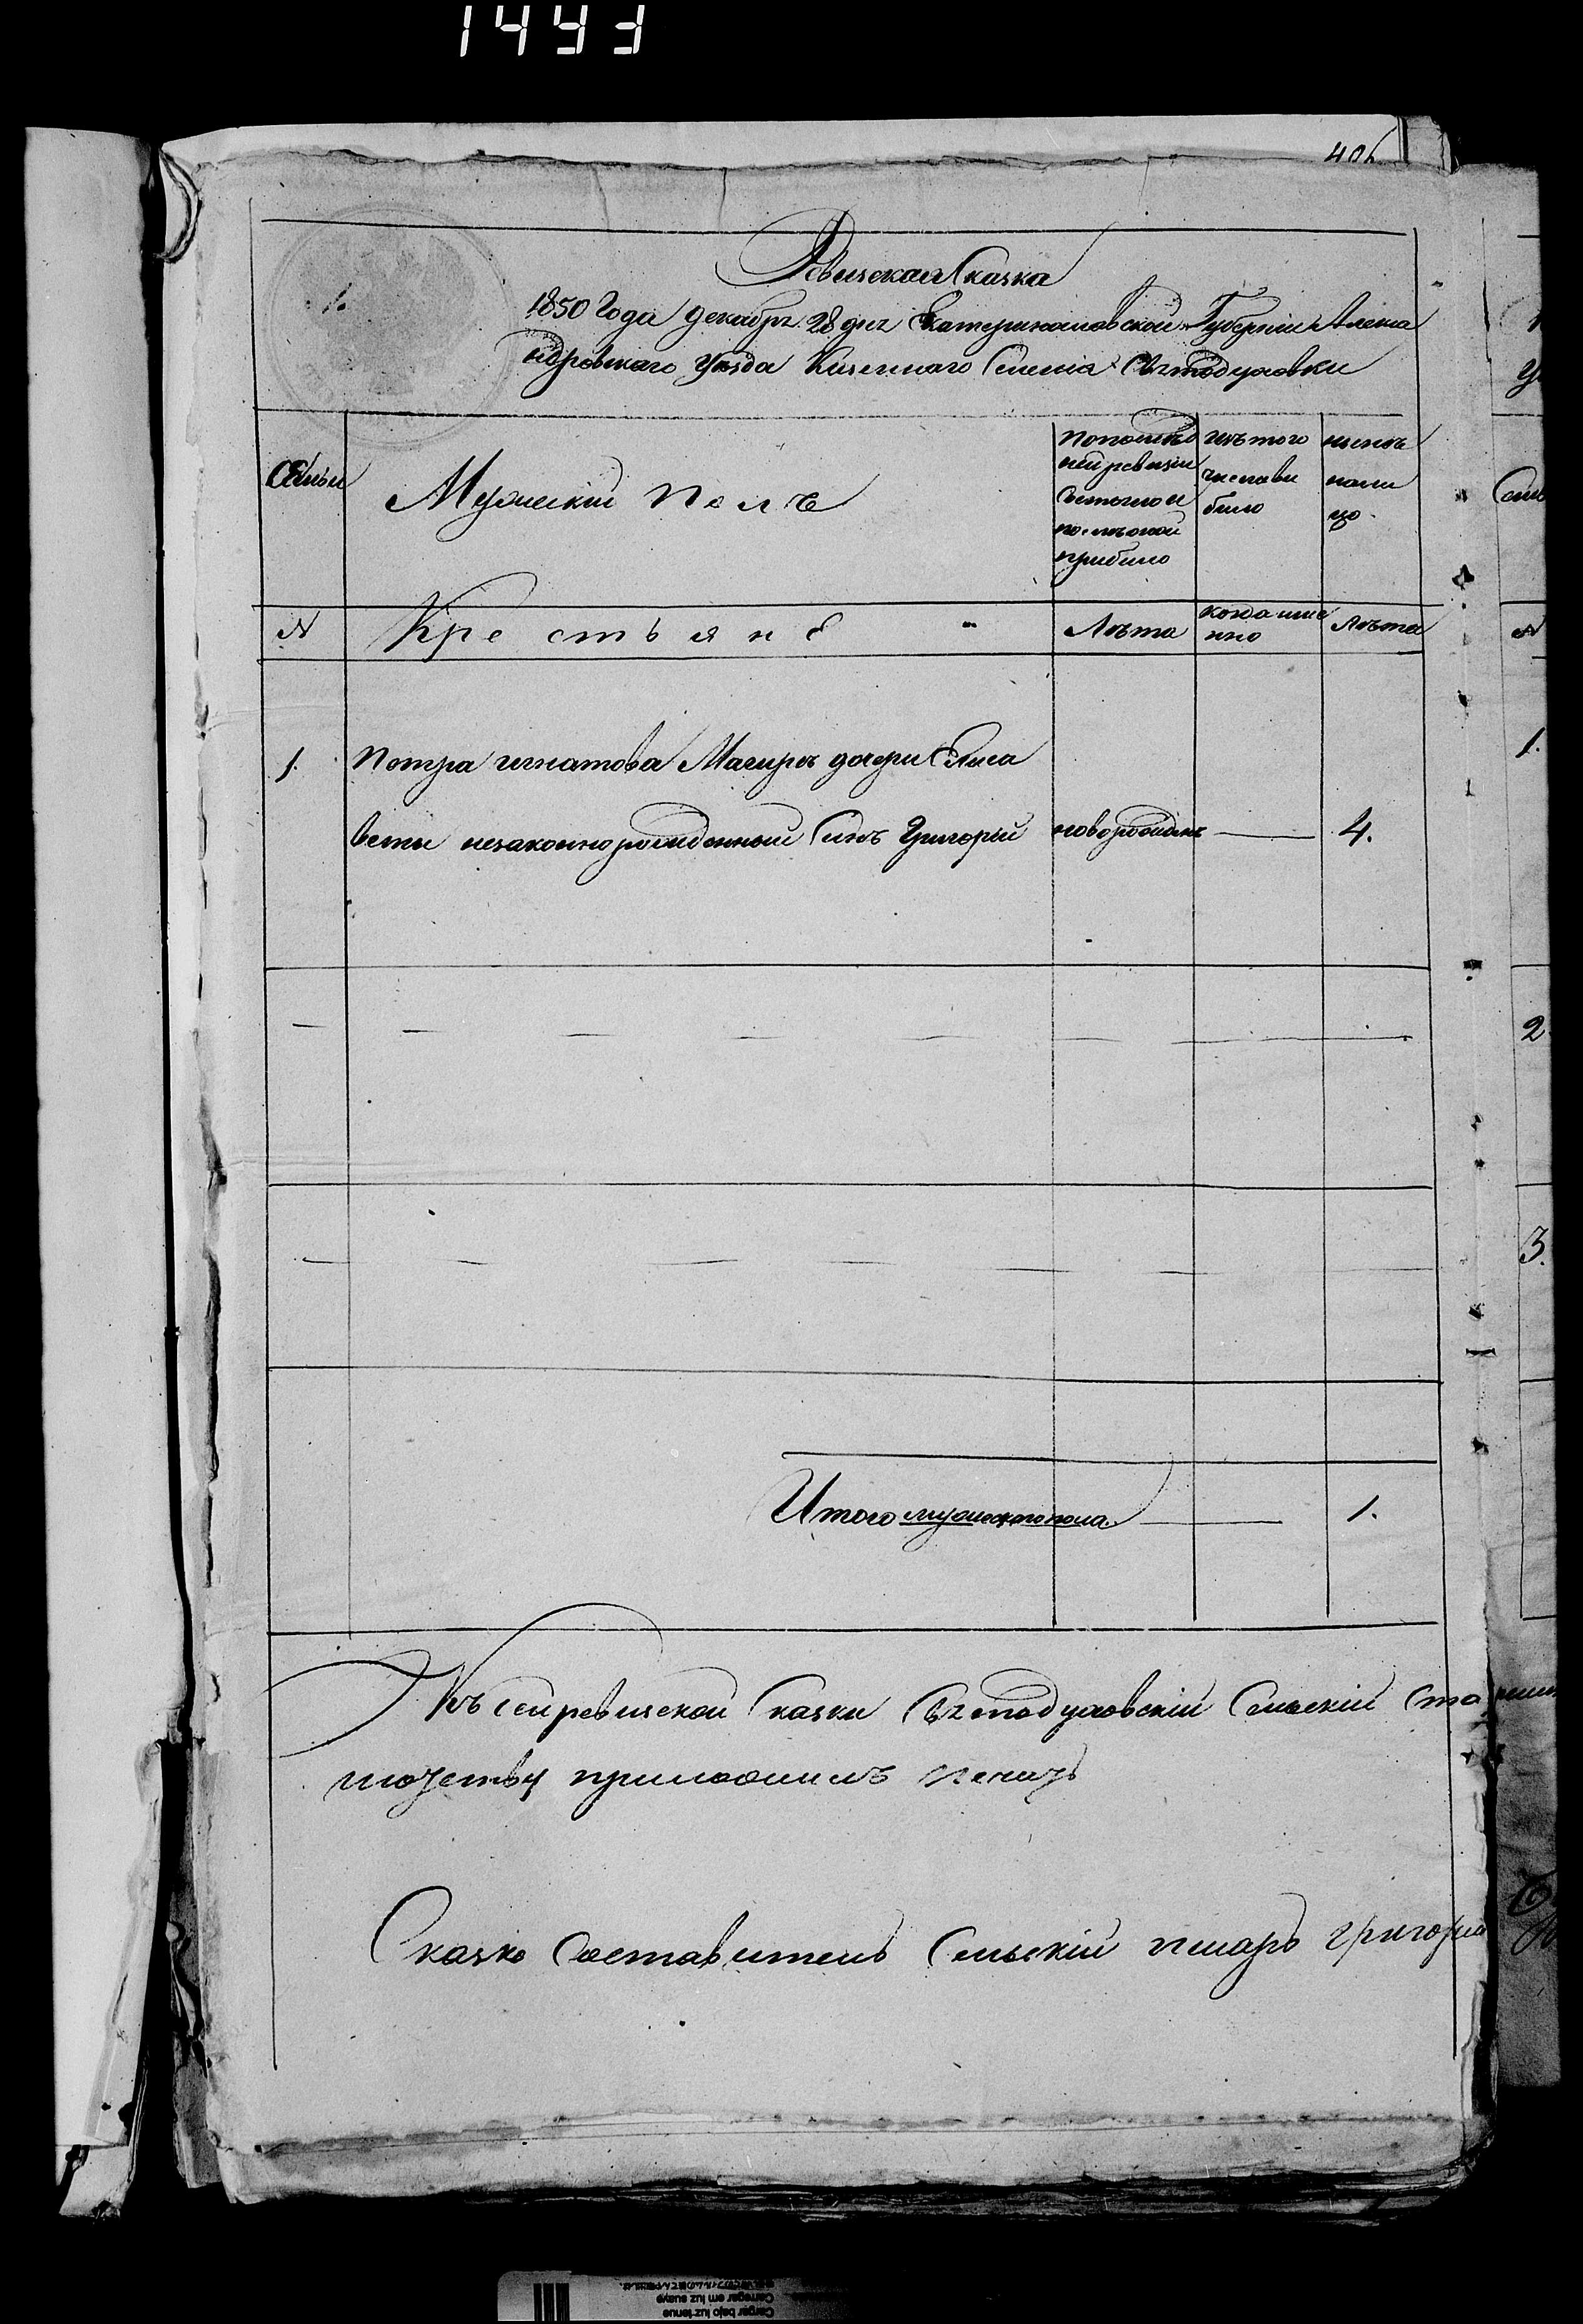 1443
406
Ревизская Сказка
1850 Года декабря 28 дня Екатеринославской Губернии Алекса
ндровского уѣзда Казенного Селенія Святодуховки
Семьи
Мужескій полъ
По последней ревизіи состояло и после оной прибыло
изъ того числа выбыло
ныне на лицо
N
Крестьяне
Лѣта
когда именно
Лѣта
1.
Петра игнатова Магиръ дочери Елиса
веты незаконнорожденный Сынъ Григорій
новорожденъ
4.
Итого мужеского пола
1.
Къ сей ревизской Сказки Святодуховскій Сельскій Ста
приложилъ печать
Сказко Составитель Сельскій писарь григорій
1.
2.
3.